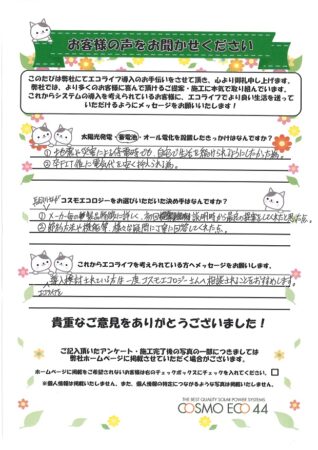 お客様の声をお聞かせください
このたびは弊社にてエコライフ導入のお手伝いをさせて頂き、心より御礼申し上げます。
弊社では、より多くのお客様に喜んで頂けるご提案・施工に本気で取り組んでいます。
これからシステムの導入を考えられているお客様に、エコライフでより良い生活を送って
いただけるようにメッセージをお願いします!
太陽光発電・蓄電池・オール電化を設置したきっかけはなんですか?
① 地震や災害による停電時でも、自宅で生活を続けられるようにしたかった為。
② 卒FIT後に電気代を安く抑えられる為。
コスモエコロジーをお選びいただいた決め手はなんですか?
① メーカー毎の製品特徴に詳しく、初回説明時から最適の提案をしてくれたと思った点。
② 節約方法や機能等、様々な疑問に丁寧に回答してくれた点。
これからエコライフを考えられている方へメッセージをお願いします。
導入検討されている方は一度コスモエコロジーさんへ相談されることをおすすめします。
貴重なご意見をありがとうございました!
ご記入頂いたアンケート・施工完了後の写真の一部につきましては
弊社ホームページに掲載させていただく場合がございます。
ホームページに掲載をご希望されないお客様は右のチェックボックスにチェックを入れてください。
※個人情報は掲載いたしません、また、個人情報の特定につながるような写真は掲載いたしません。
THE BEST QUALITY SOLAR POWER SYSTEMS
COSMO ECO 44